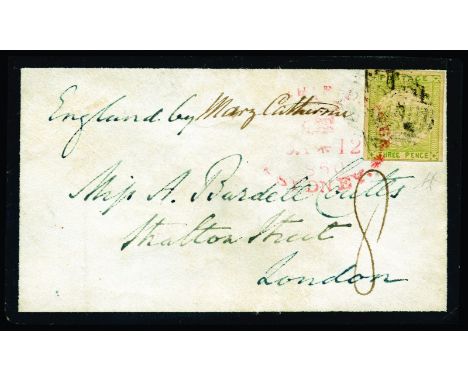 England by Mary Catherine
THREE PENCE
JA 12
SYDNEY
Miss A. Burdett Coutts
8
Stratton Street
London